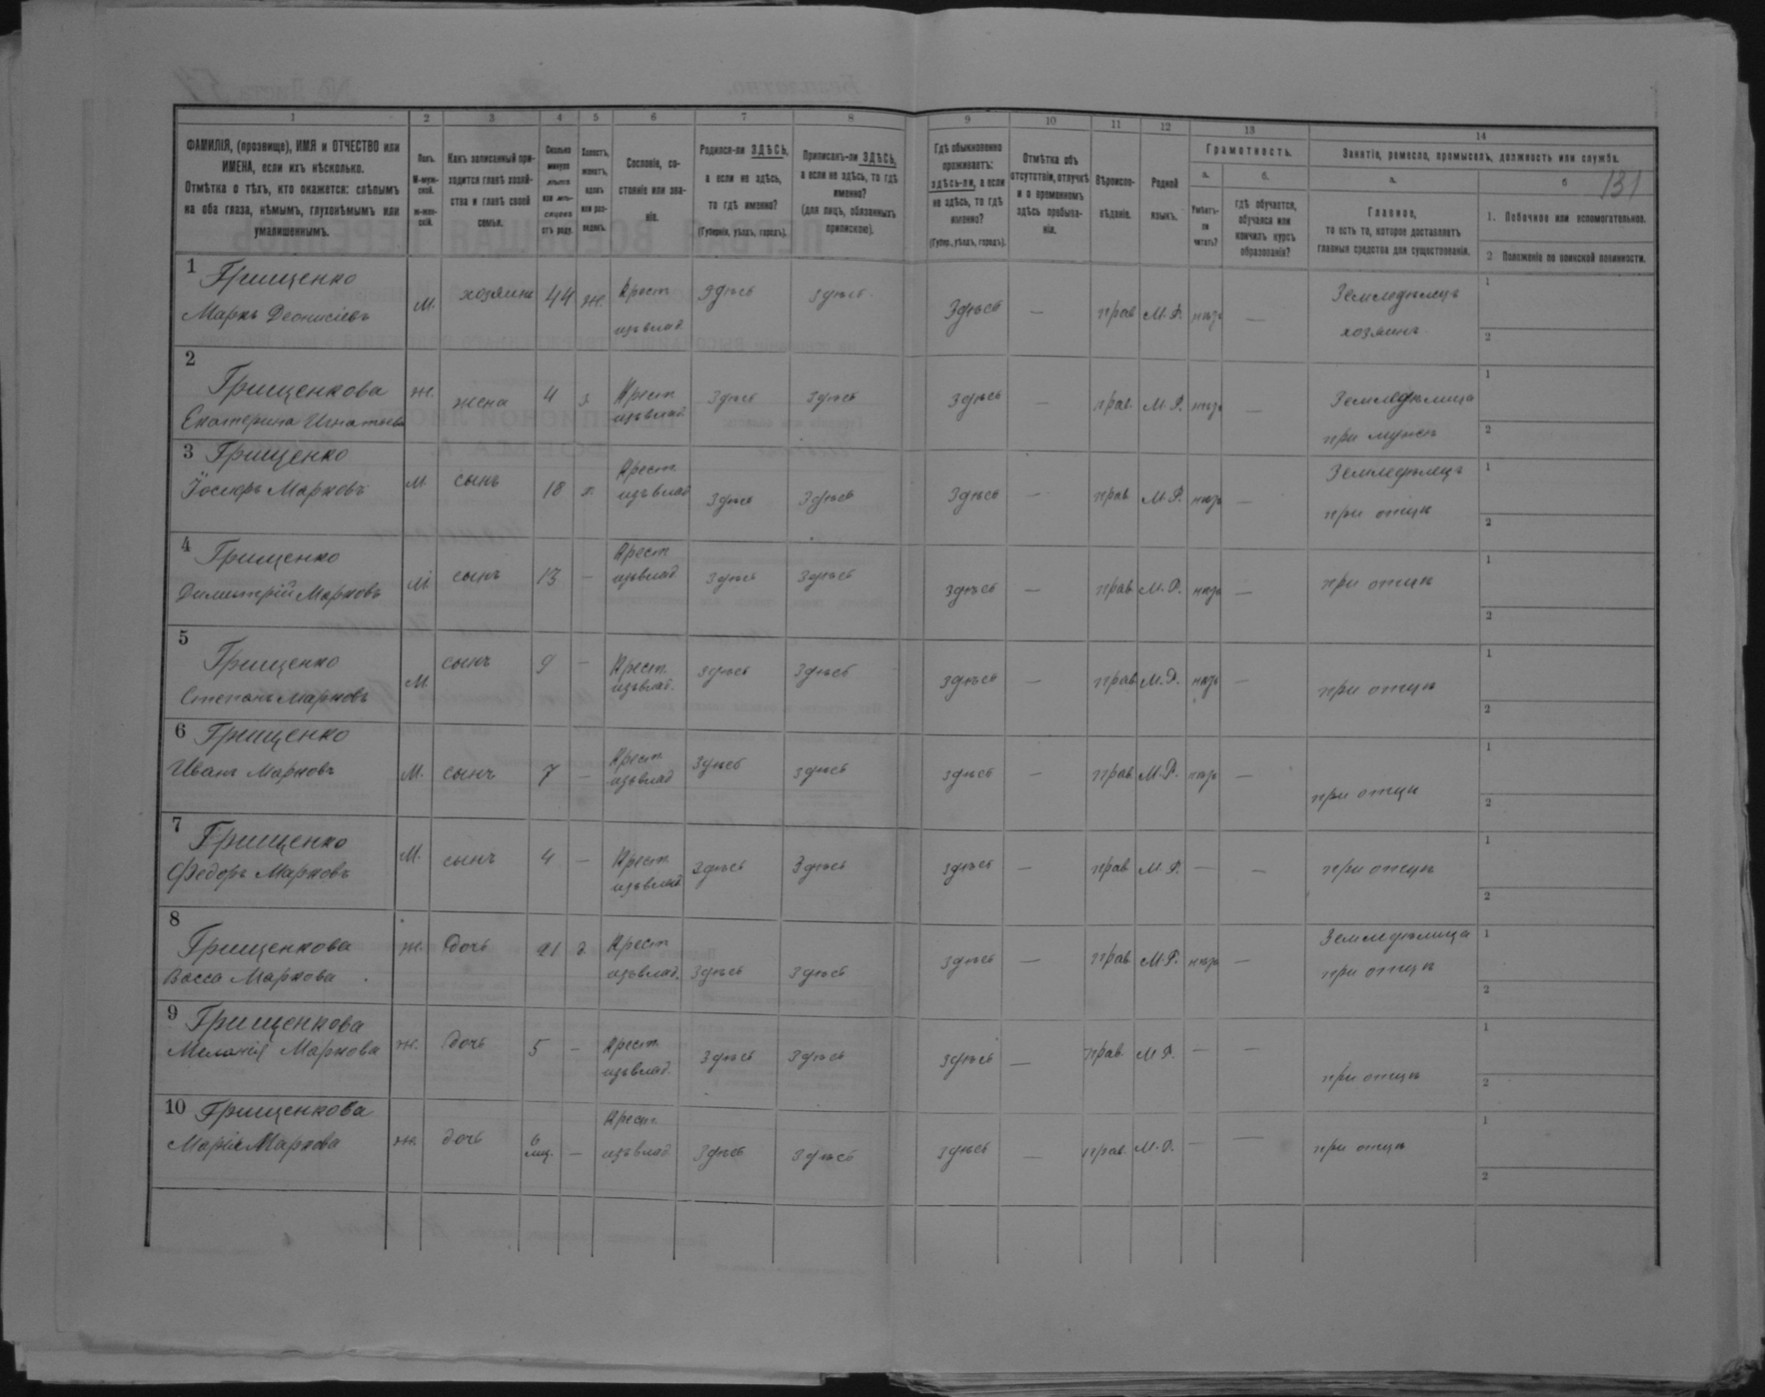 131
1 2 3 4 5 6 7 8 9 10 11 12 13 14
ФАМИЛІЯ, (прозвище), ИМЯ и ОТЧЕСТВО или
ИМЕНА, если ихъ нѣсколько.
Отмѣтка о тѣхъ, кто окажется: слѣпымъ
на оба глаза, нѣмымъ, глухонѣмымъ или
умалишеннымъ.
Полъ.
М-муж-
ской.
ж-жен-
скій.
Какъ записанный при-
ходится главѣ хозяй-
ства и главѣ своей
семьи.
Сколько
минуло
лѣтъ
или мѣ-
сяцевъ
отъ роду.
Холостъ,
женатъ,
вдовъ
или раз-
веденъ.
Сословіе, со-
стояніе или зва-
ніе.
Родился-ли ЗДѢСЬ,
а если не здѣсь,
то гдѣ именно?
(Губернія, уѣздъ, городъ).
Приписанъ-ли ЗДѢСЬ,
а если не здѣсь, то гдѣ
именно?
(для лицъ, обязанныхъ
припискою).
Гдѣ обыкновенно
проживаетъ:
здѣсь-ли, а если
не здѣсь, то гдѣ
именно?
(Губер., уѣздъ, городъ).
Отмѣтка объ
отсутствіи, отлучкѣ
и о временномъ
здѣсь пребыва-
ніи.
Вѣроиспо-
вѣданіе.
Родной
языкъ.
Грамотность.
а.
Умѣетъ-
ли
читать?
б.
гдѣ обучается,
обучался или
кончилъ курсъ
образованія?
Занятіе, ремесло, промыселъ, должность или служба.
а.
Главное,
то есть то, которое доставляетъ
главныя средства для существованія.
б
1. Побочное или вспомогательное.
2 Положеніе по воинской повинности.
1 Грищенко
Маркъ Деонисіевъ
М. хозяинъ 44 ж. Крест. изъ влад. здѣсь здѣсь Здѣсь — прав М. Р. —
Земледѣлецъ
хозяинъ
1
2
2
Грищенкова
Екатерина Игнатьева
ж. жена Крест. изъ влад. здѣсь здѣсь здѣсь — прав. М. Р. —
Земледѣлица
при мужѣ
1
2
3 Грищенко
Іосифъ Марковъ
М сынъ 18 Крест. изъ влад здѣсь здѣсь здѣсь — прав М. Р. —
Земледѣлецъ
при отцѣ
1
2
4
Грищенко
Димитрій Марковъ
М сынъ 13 — Крест изъ влад здѣсь здѣсь здѣсь — прав М. Р. —
при отцѣ
1
2
5
Грищенко
Степанъ Марковъ
М. сынъ 9 — Крест. изъ влад. здѣсь здѣсь здѣсь — прав М. Р. —
при отцѣ
1
2
6 Грищенко
Иванъ Марковъ
М. сынъ 7 — Крест изъ влад здѣсь здѣсь здѣсь — прав М. Р. —
при отцѣ
1
2
7
Грищенко
Федоръ Марковъ
М. сынъ 4 — Крест. изъ влад здѣсь здѣсь здѣсь — прав М. Р. — —
при отцѣ
1
2
8
Грищенкова
Васса Маркова
ж. дочь 21 д. Крест изъ влад. здѣсь здѣсь здѣсь — прав М. Р. —
Земледѣлица
при отцѣ
1
2
9 Грищенкова
Меланія Маркова
ж. дочь 5 — Крест изъ влад. здѣсь здѣсь здѣсь — прав. М Р. — —
при отцѣ
1
2
10 Грищенкова
Марія Маркова
ж. дочь 6 мц. — Крест. изъ влад. здѣсь здѣсь здѣсь — прав. М. Р. — —
при отцѣ
1
2